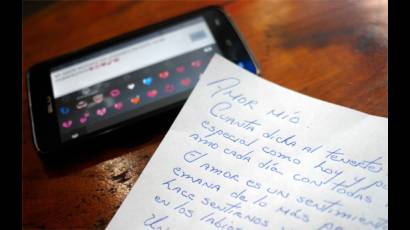 AMOR MÍO:
CUANTA DICHA AL TENERTE
ESPECIAL COMO HOY Y PO
AMO CADA DÍA CON TODAS
EL AMOR ES UN SENTIMIENTO
EMANA DE LO MÁS P
HACE SENTIRNOS
EN LOS LABIOS